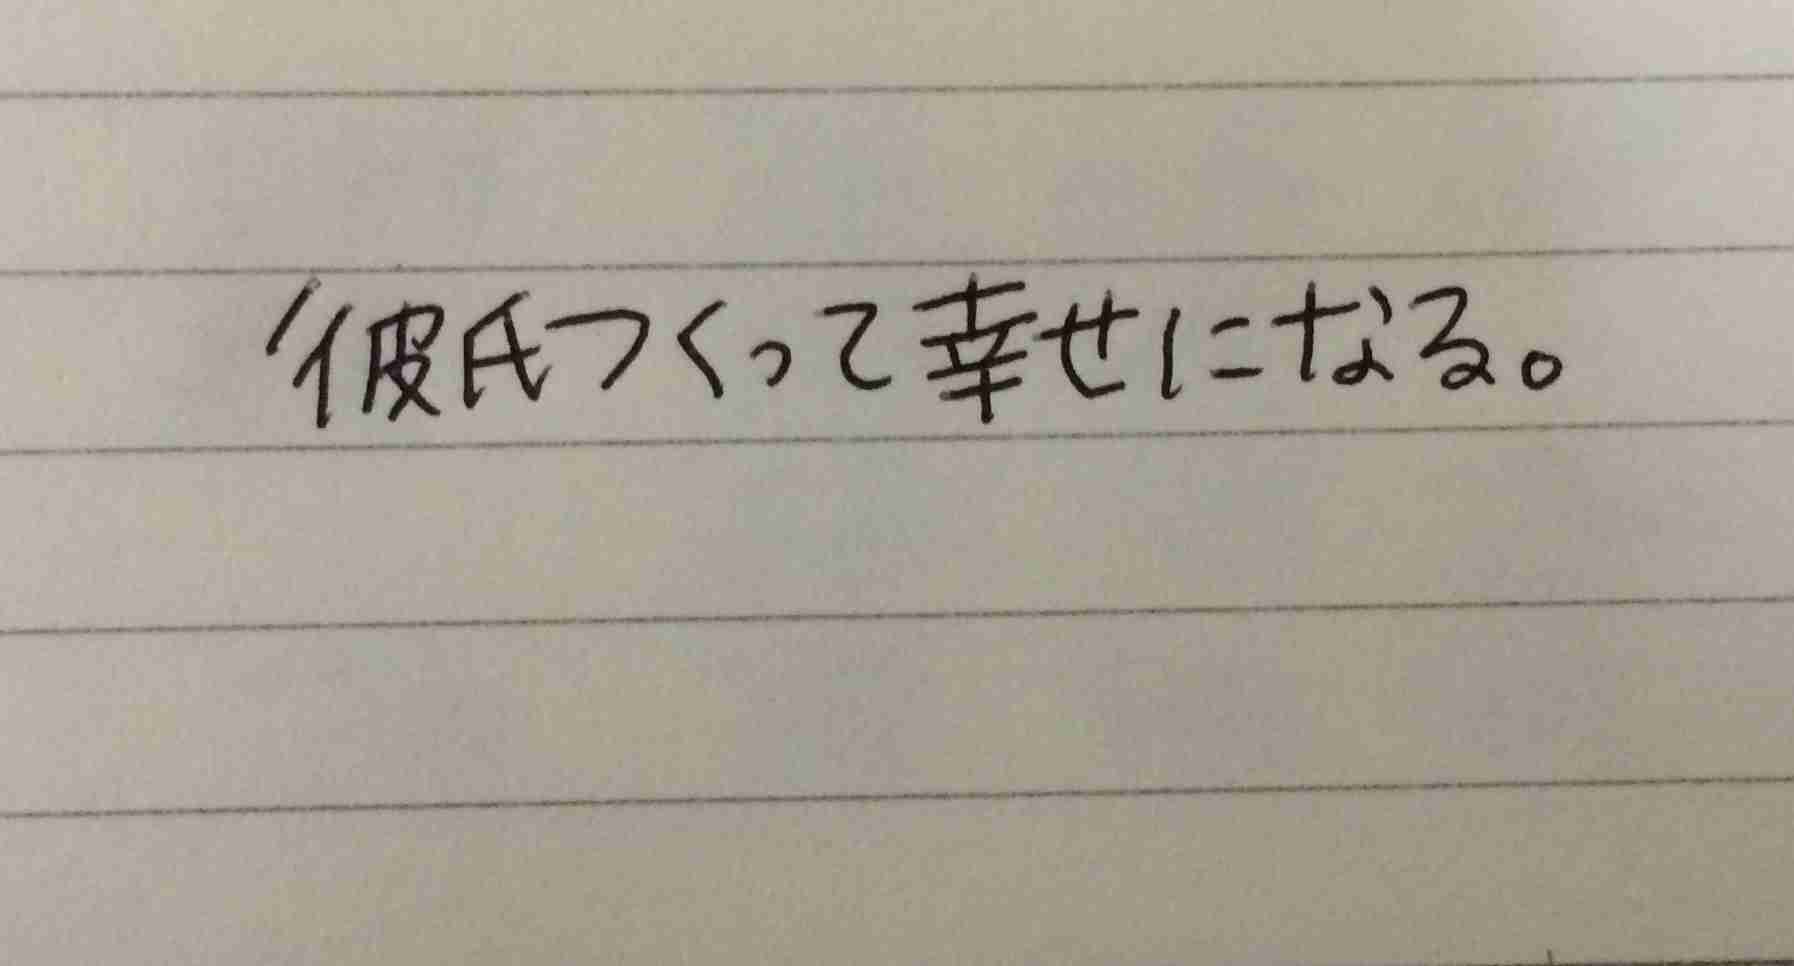 彼氏つくって幸せになる。